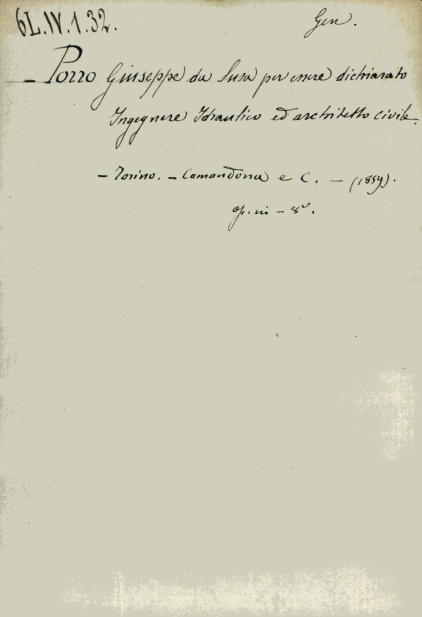 6L.IV.1.32.
Gen.
– Porro Giuseppe da Susa per essere dichiarato
Ingegnere Idraulico ed architetto civile.
– Torino. – Camandona e C. – (1859).
op. in – 8°.